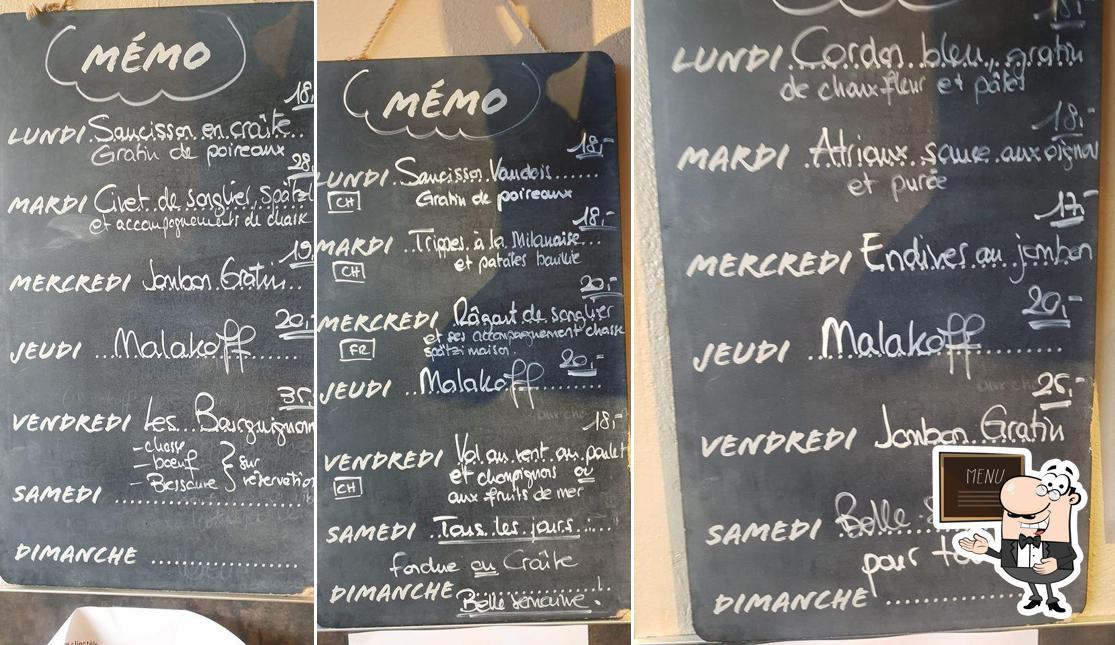 MÉMO
18,-
LUNDI Saucisson en croûte
Gratin de poireaux
28,-
MARDI Civet de sanglier, spätzl
et accompagnement de chasse
19,
MERCREDI Jambon Gratin
20,-
JEUDI Malakoff
35,-
VENDREDI Les Bourguignon
- chasse
- boeuf } sur
- Bressane } réservation
SAMEDI
DIMANCHE
MÉMO
18,-
LUNDI Saucisson Vaudois
CH Gratin de poireaux
18,-
MARDI Tripes à la Milanaise
CH et patates bouillie
20,-
MERCREDI Râgout de sanglier
et ses accompagnement chasse
FR spätzli maison.
20,-
JEUDI Malakoff
18,-
VENDREDI Vol au vent au poulet
et champignons ou
CH aux fruits de mer
SAMEDI Tous les jours
fondue ou Croûte
DIMANCHE
Belle semaine.
LUNDI Cordon bleu, gratin
de choux-fleur et pâtes
18,-
MARDI Atriaux, sauce aux oignon
et purée
17,-
MERCREDI Endives au jambon
20,-
JEUDI Malakoff
25,-
VENDREDI Jambon Gratin
MENU
SAMEDI Belle
pour
DIMANCHE